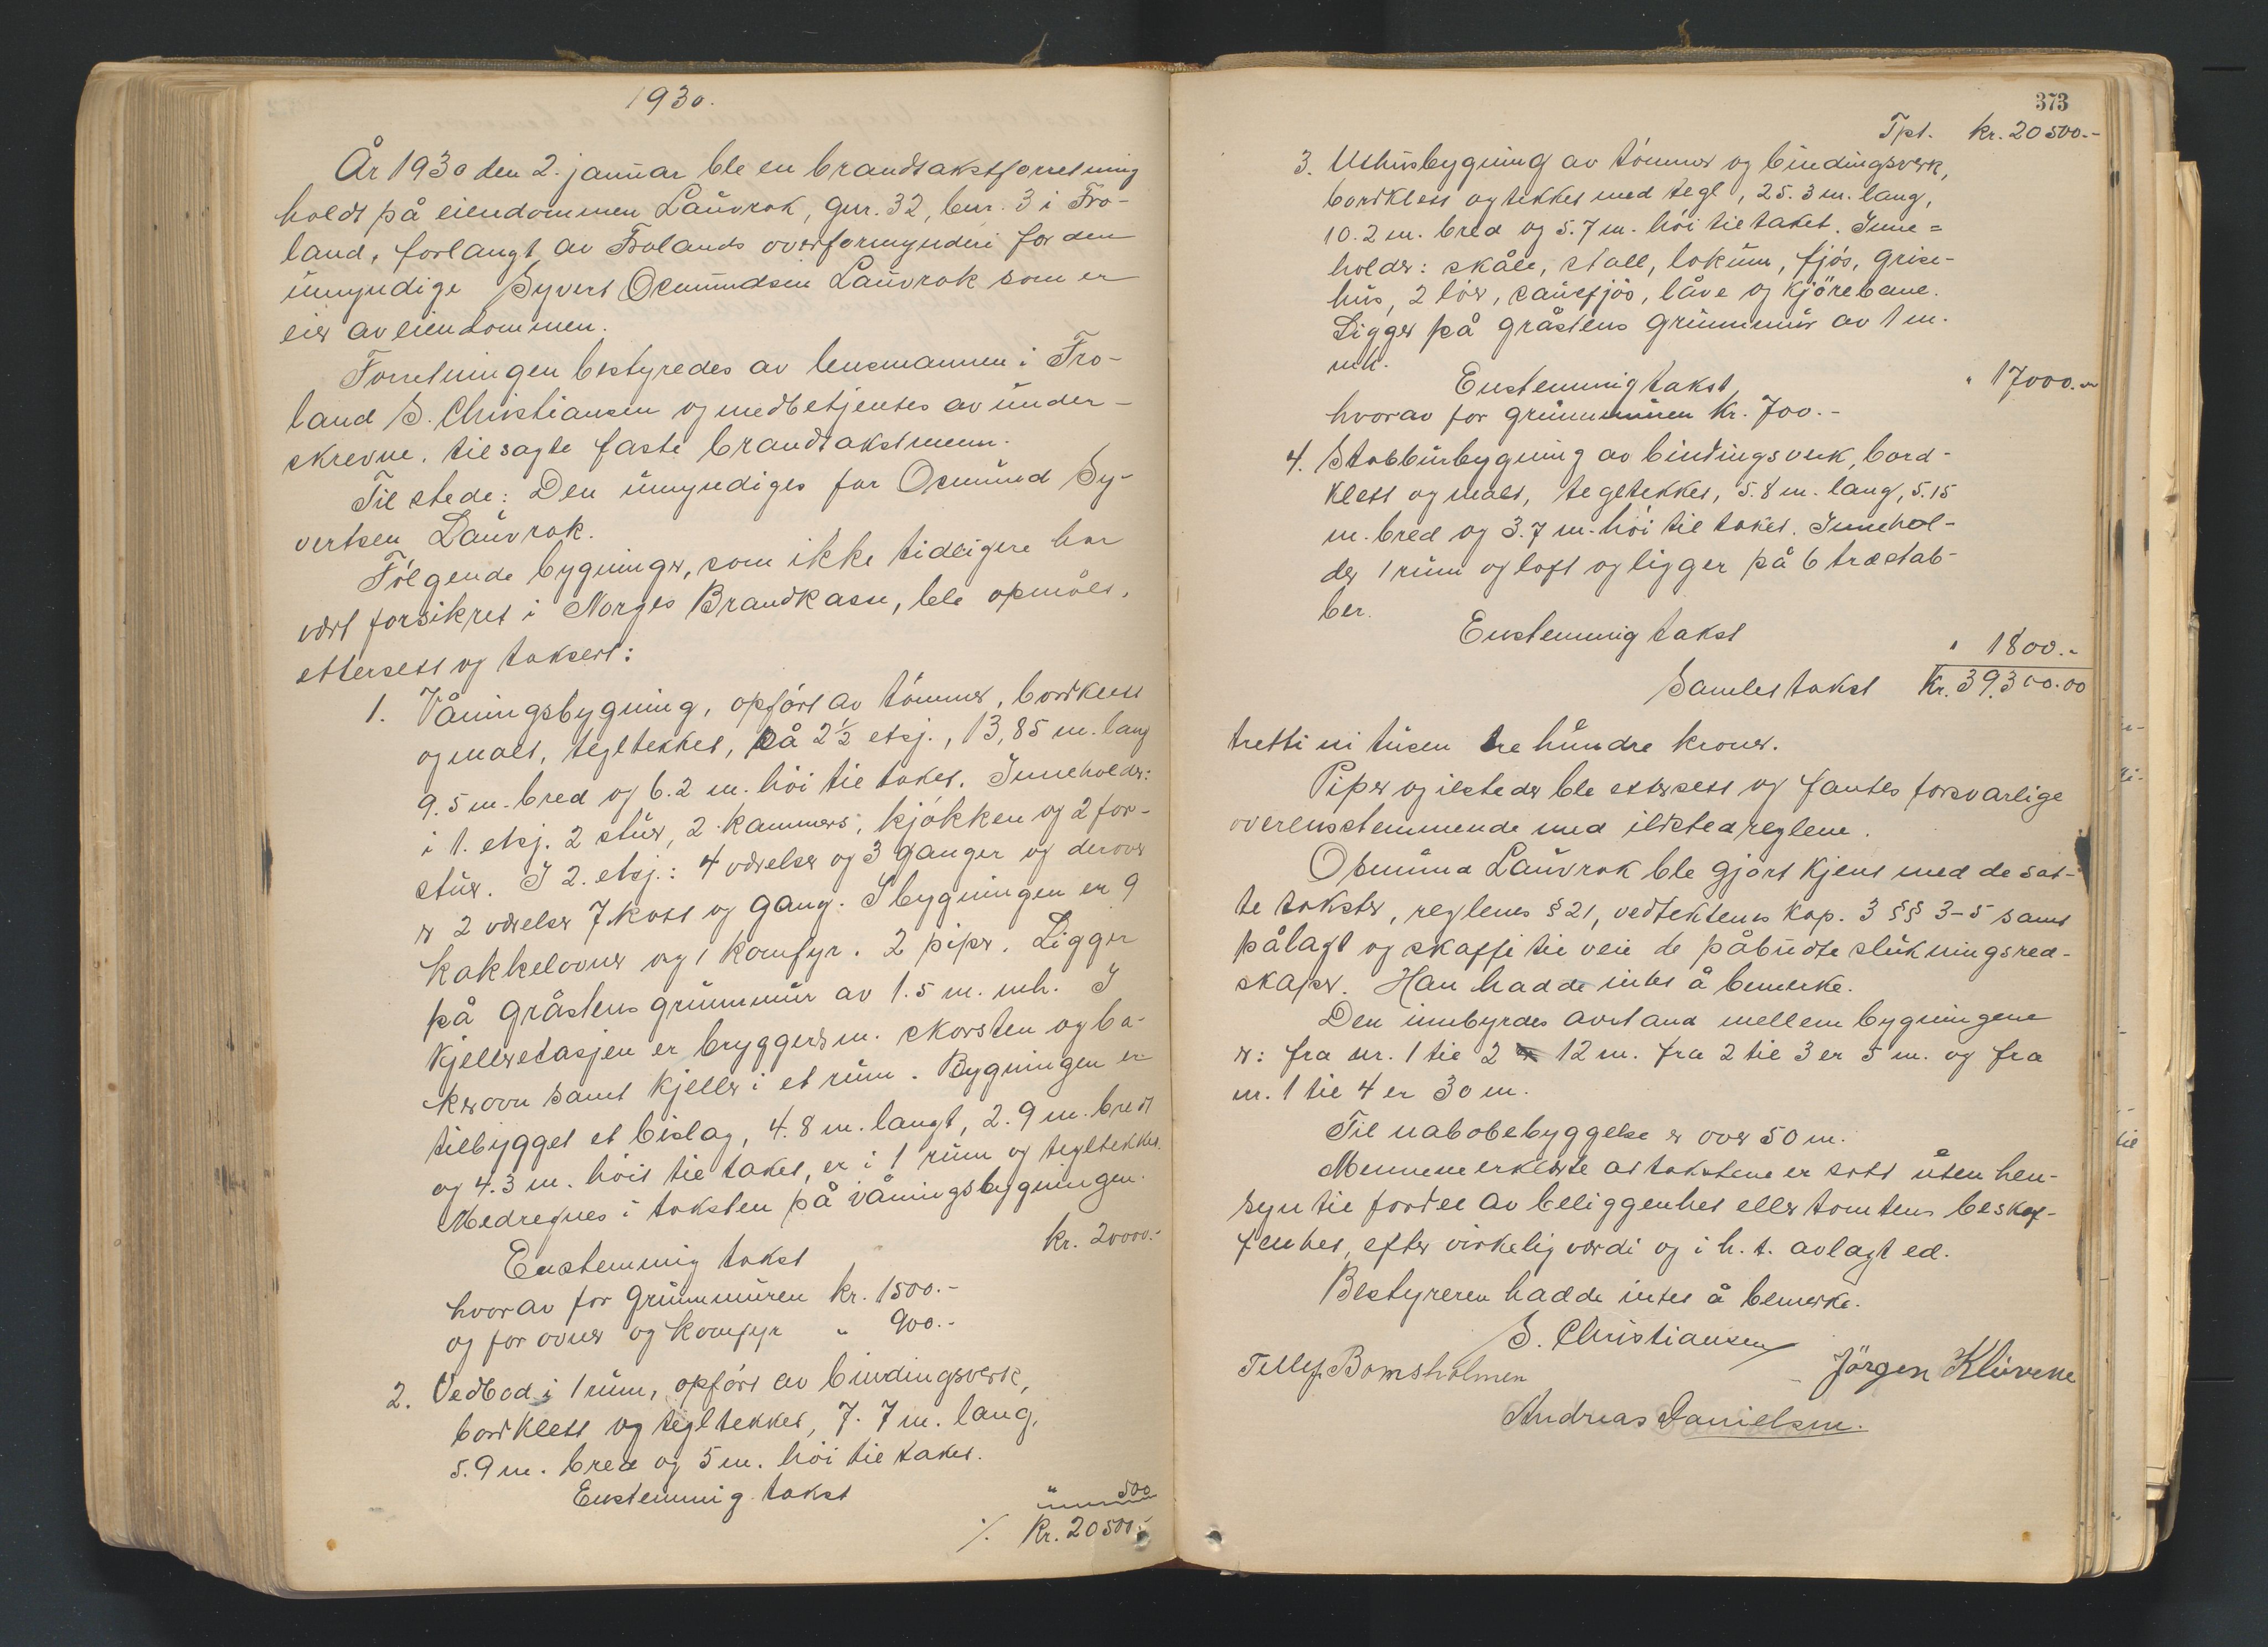 1930.
År 1930 den 2. januar ble en brandtakstforretning
holdt på eiendommen Lauvrak, gnr. 32, bnr. 3 i Fro-
land, forlangt av Frolands overformynderi for den
umyndige Syvert Osmundsen Lauvrak som er
eier av eiendommen.
Forretningen bestyredes av lensmannen i Fro-
land S. Christiansen og medbetjentes av under-
skrevne, tilsagte faste brandtakstmenn.
Til stede: Den umyndiges far Osmund Sy-
vertsen Lauvrak.
Følgende bygninger, som ikke tidligere har
vært forsikret i Norges Brandkasse, ble opmålt,
ettersett og taksert:
1. Våningsbygning, opført av tømmer, bordklett
og malt, tegltekket, på 2½ etsj., 13,85 m. lang
9.5 m. bred og 6.2 m. høi til taket. Inneholder:
i 1. etsj. 2 stuer, 2 kammers, kjøkken og 2 for-
stuer. I 2. etsj.: 4 værelser og 3 ganger og derover
er 2 værelser 7 kott og gang. I bygningen er 9
kakkelovner og 1 komfyr. 2 piper. Ligger
på gråstens grunnmur av 1.5 m. mh. I
kjelleretasjen er bryggers m. skorsten og ba-
kerovn samt kjeller i et rum. Bygningen er
tilbygget et bislag, 4.8 m. langt, 2.9 m. bredt
og 4.3 m. høit til taket, er i 1 rum og tegltekket.
Medregnes i taksten på våningsbygningen.
Enstemmig takst kr. 20000.-
hvorav for grunnmuren kr. 1500.-
og for ovner og komfyr " 900.-
2. Vedbod i 1 rum, opført av bindingsverk,
bordklett og tegltekket, 7.7 m. lang,
5.9 m. bred og 5 m. høi til taket.
Enstemmig takst " 500
./. Kr. 20500.-
373
Tpt. kr. 20500.-
3. Uthusbygning av tømmer og bindingsverk,
bordklett og tekket med tegl, 25.3 m. lang,
10.2 m. bred og 5.7 m. høi til taket. Inne=
holder: skåle, stall, lokum, fjøs, grise-
hus, 2 løer, sauefjøs, låve og kjørebane.
Ligger på gråstens grunnmur av 1 m.
mh.
Enstemmig takst " 17000.-
hvorav for grunnmuren kr. 700.-
4. Stabbursbygning av bindingsverk, bord-
klett og malt, tegltekket, 5.8 m. lang, 5.15
m. bred og 3.7 m. høi til taket. Innehol-
der 1 rum og loft og ligger på 6 træstab-
ber.
Enstemmig takst " 1800.-
Samlet takst Kr. 39.300.00
tretti ni tusen tre hundre kroner.
Piper og ilsteder ble ettersett og fantes forsvarlige
overensstemmende med ildstedreglene.
Osmund Lauvrak ble gjort kjent med de sat-
te takster, reglenes § 21, vedtektenes kap. 3 §§ 3-5 samt
pålagt og skaffe til veie de påbudte slukningsred-
skaper. Han hadde intet å bemerke.
Den innbyrdes avstand mellem bygningene
er: fra nr. 1 til 2 er 12 m. fra 2 til 3 er 5 m. og fra
nr. 1 til 4 er 30 m.
Til nabobebyggelse er over 50 m.
Mennene erklærte at takstene er satt uten hen-
syn til fordel av beliggenhet eller tomtens beskaf-
fenhet, efter virkelig værdi og i h. t. avlagt ed.
Bestyreren hadde intet å bemerke.
S. Christiansen
Tellef Bomsholmen Jörgen Kløvene
Andreas Danielsen.